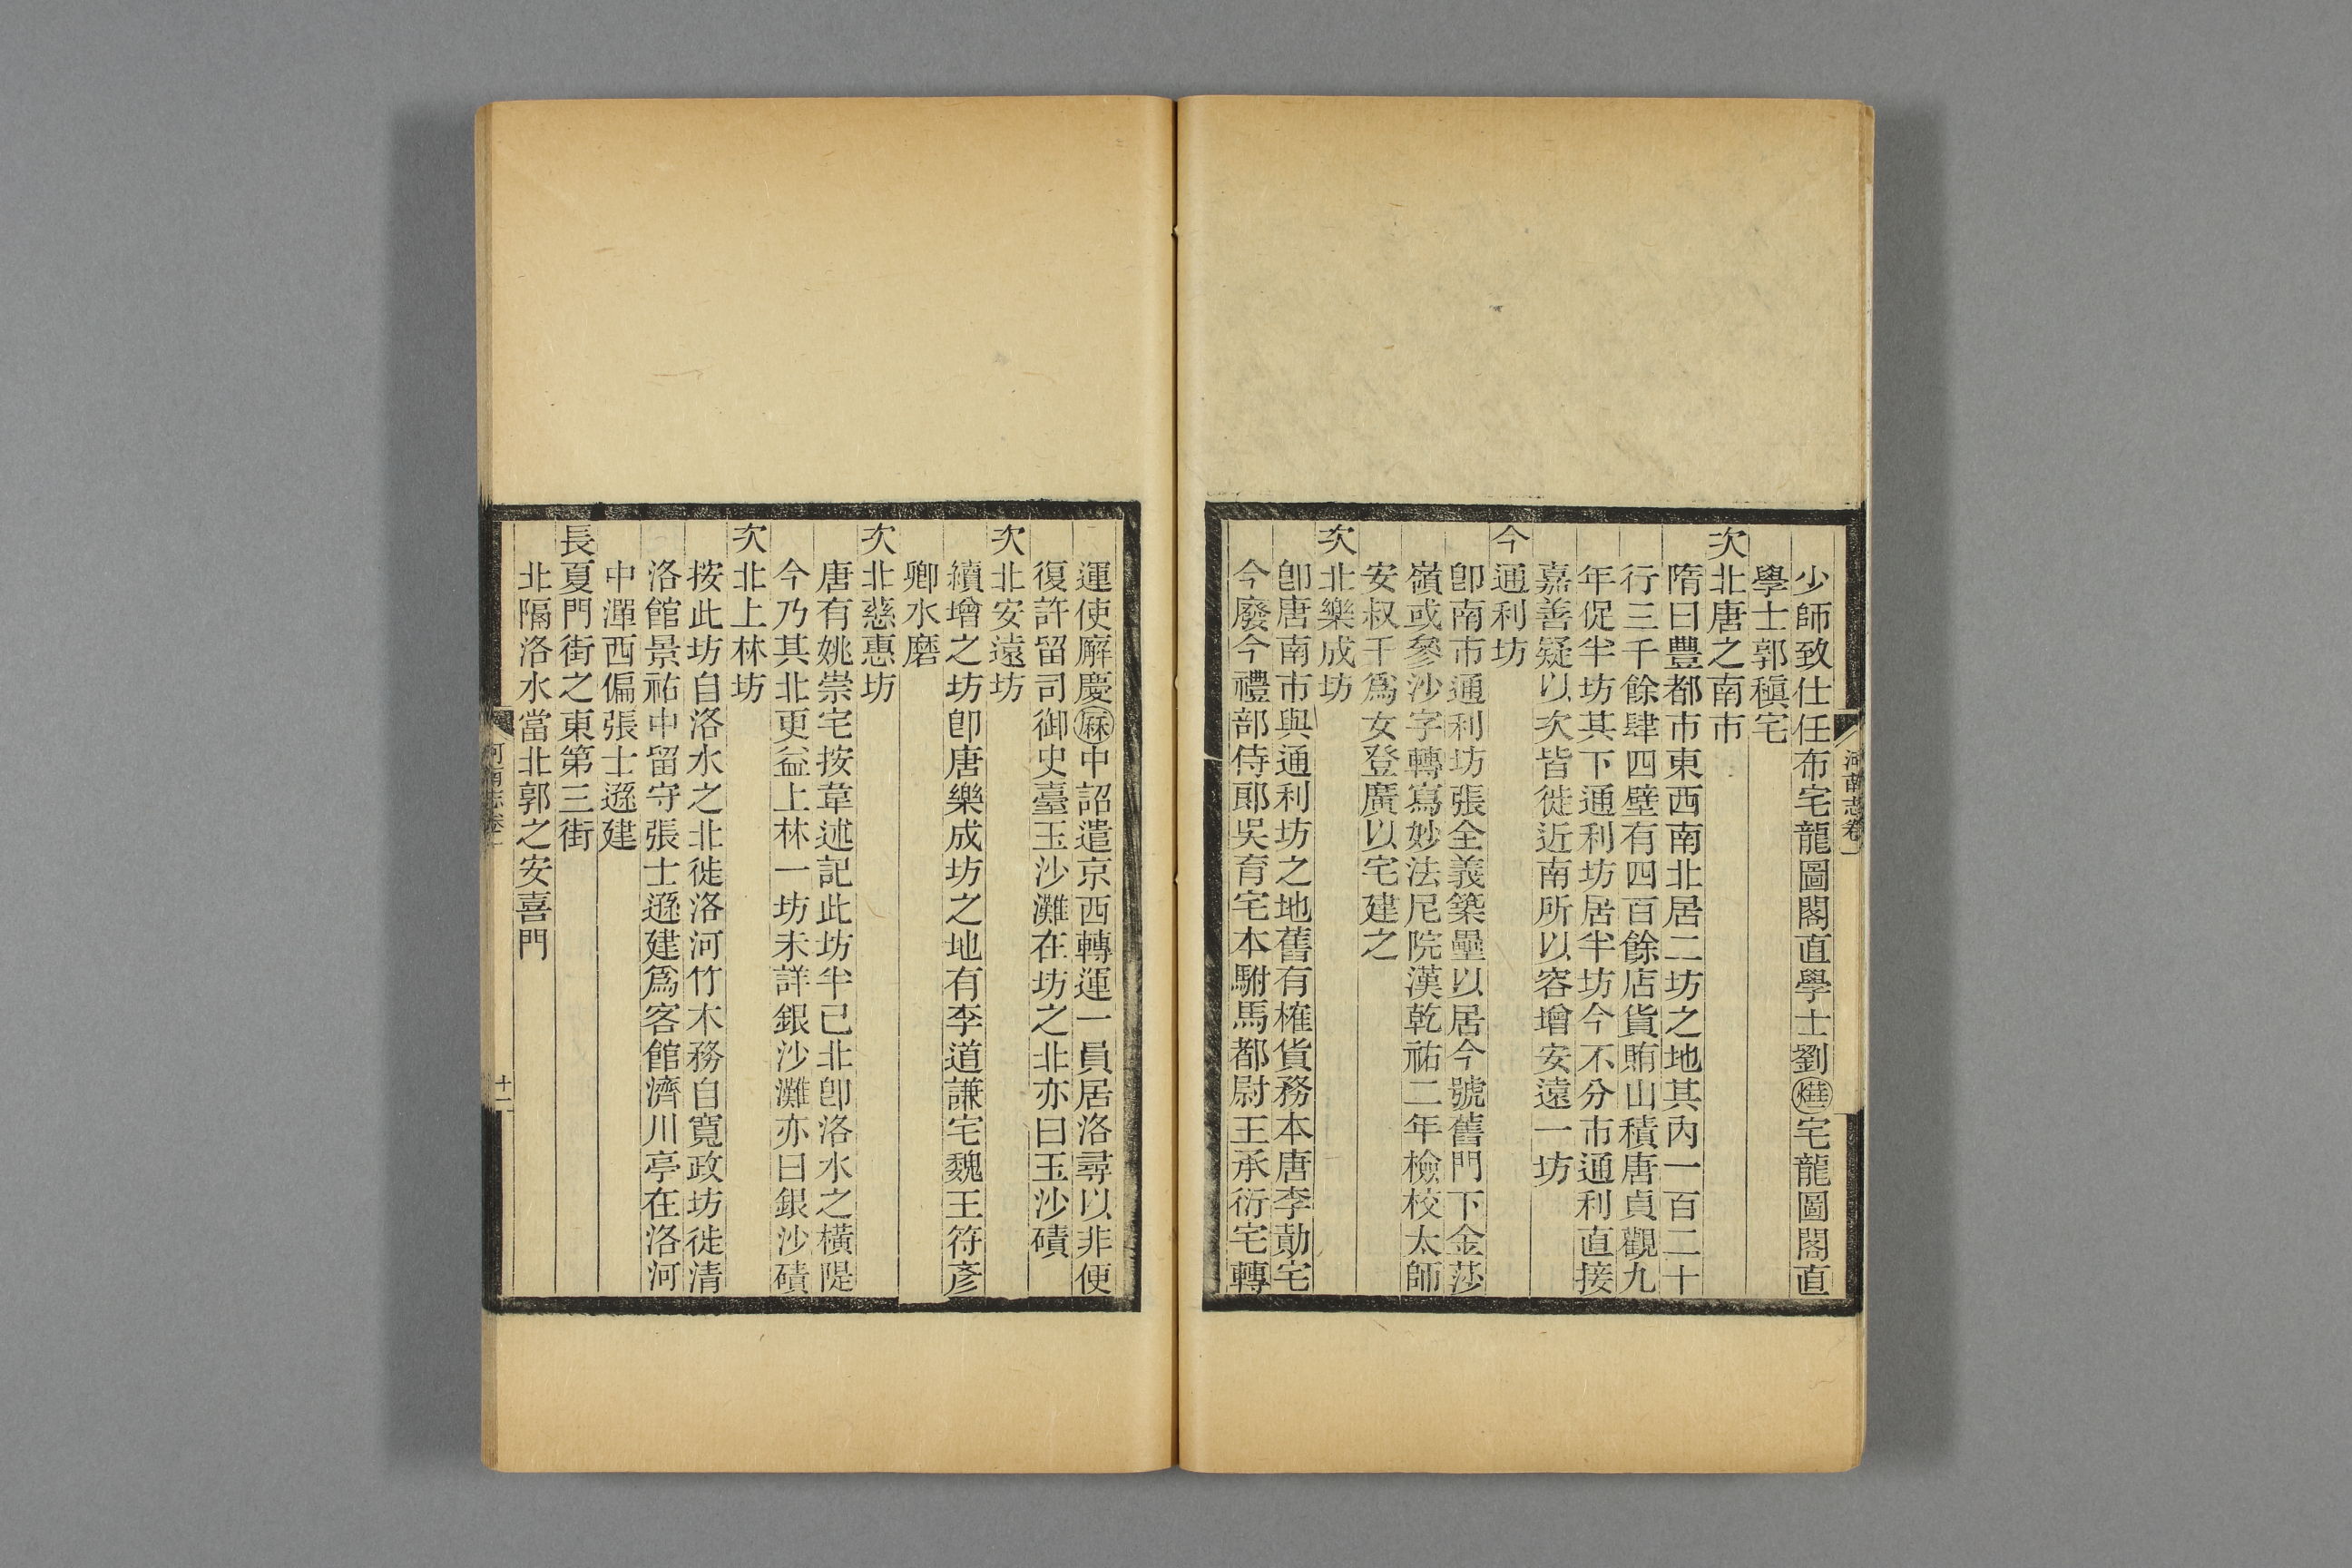 河南志卷一
少師致仕任布宅龍圖閣直學士劉燁宅龍圖閣直
學士郭稹宅
次北唐之南市
隋曰豐都市東西南北居二坊之地其內一百二十
行三千餘肆四壁有四百餘店貨賄山積唐貞觀九
年促半坊其下通利坊居半坊今不分市通利直接
嘉善疑以次皆徙近南所以容增安遠一坊
今通利坊
卽南市通利坊張全義築壘以居今號舊門下金莎
嶺或參沙字轉寫妙法尼院漢乾祐二年檢校太師
安叔千爲女登廣以宅建之
次北樂成坊
卽唐南市與通利坊之地舊有榷貨務本唐李勣宅
今廢今禮部侍郎吳育宅本駙馬都尉王承衍宅轉
運使廨慶厤中詔遣京西轉運一員居洛尋以非便
復許留司御史臺玉沙灘在坊之北亦曰玉沙磧
次北安遠坊
續增之坊卽唐樂成坊之地有李道謙宅魏王符彥
卿水磨
次北慈惠坊
唐有姚崇宅按韋述記此坊半已北卽洛水之橫隄
今乃其北更益上林一坊未詳銀沙灘亦曰銀沙磧
次北上林坊
按此坊自洛水之北徙洛河竹木務自寬政坊徙清
洛館景祐中留守張士遜建爲客館濟川亭在洛河
中潬西偏張士遜建
長夏門街之東第三街
北隔洛水當北郭之安喜門
河南志卷一
十一